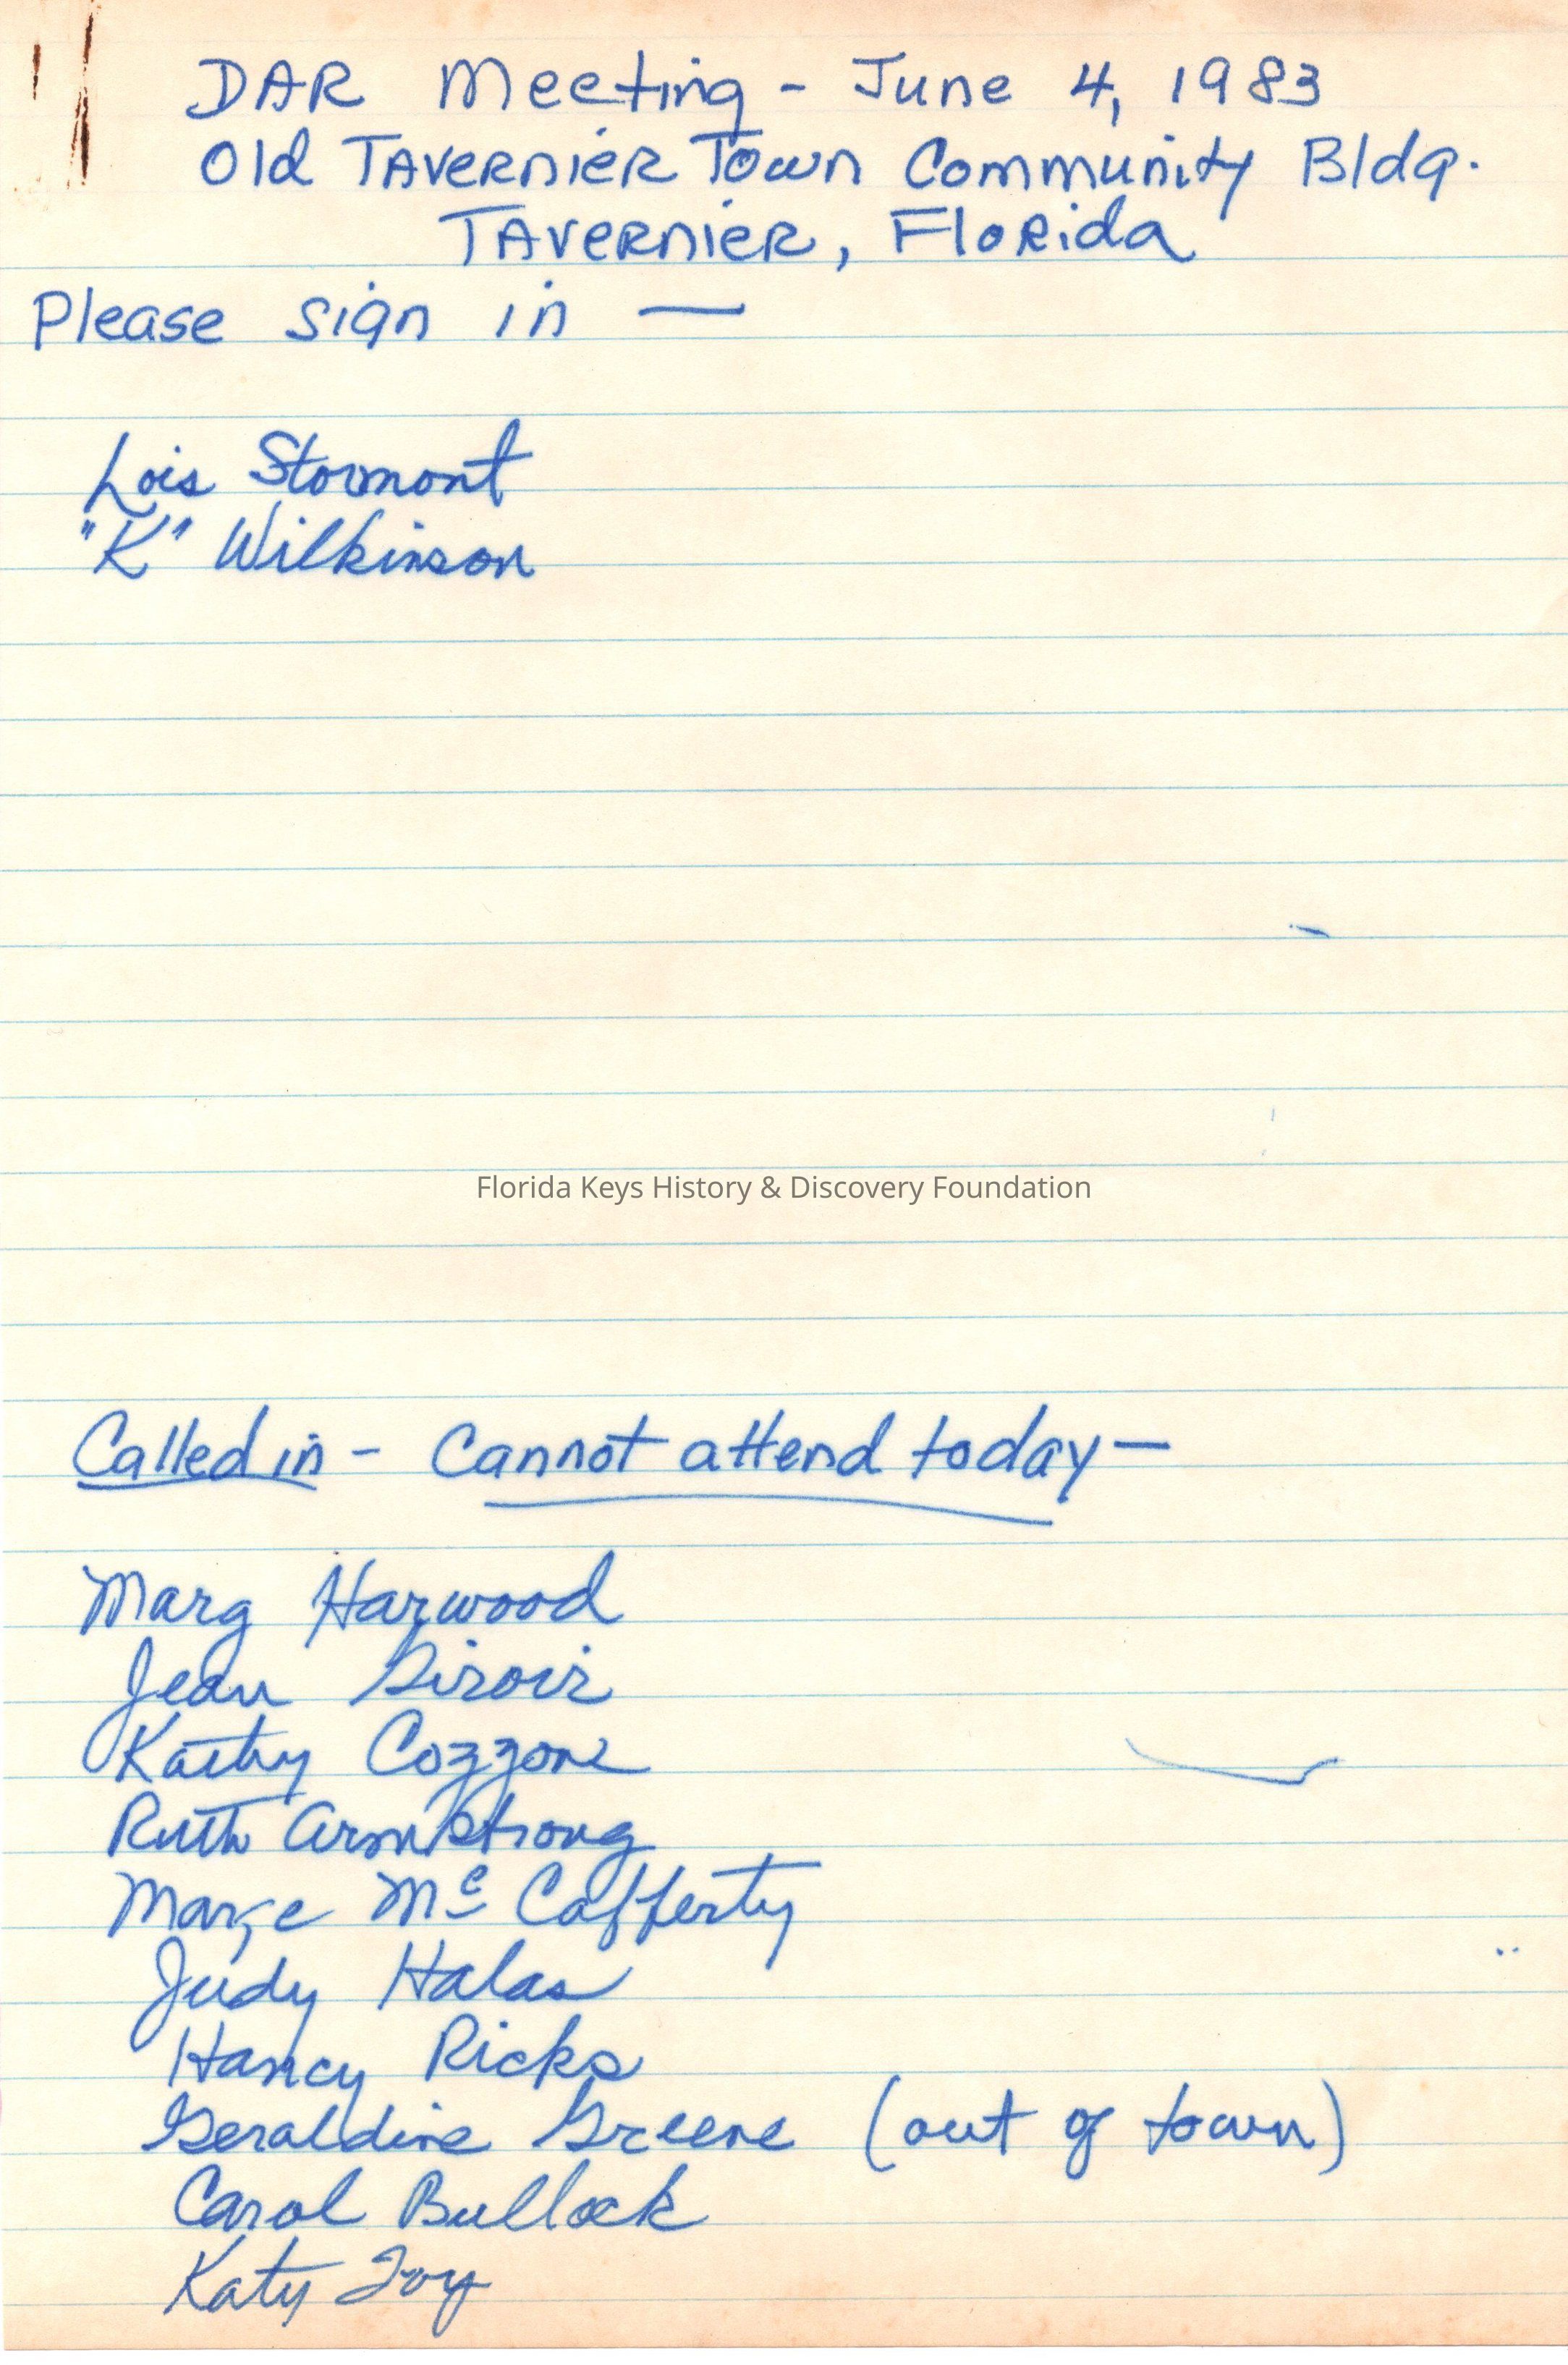 DAR Meeting - June 4, 1983
Old TAVERNIER Town Community Bldg.
TAVERNIER, Florida
Please sign in —
Lois Stormont
"K" Wilkinson
Florida Keys History & Discovery Foundation
Called in - Cannot attend today —
Marg Harwood
Jean
Kathy Cozzone
Ruth Armstrong
Marge Mc Cafferty
Judy Halas
Nancy Ricks
Geraldine Greene (out of town)
Carol Bullock
Katy